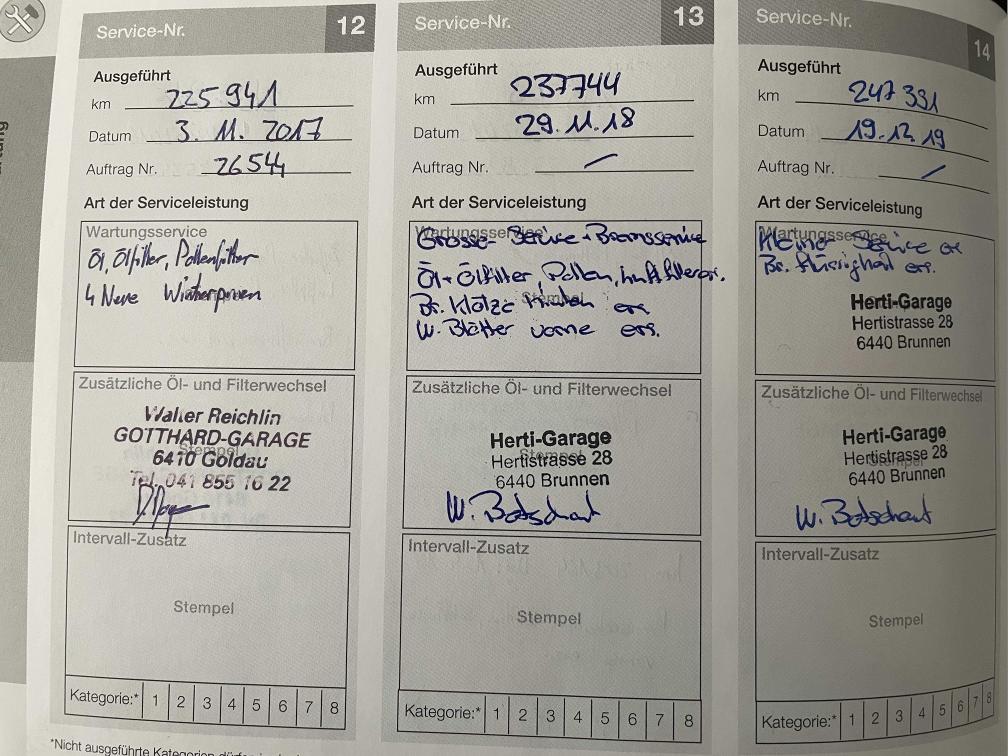 Service-Nr. 12
Ausgeführt
km 225 941
Datum 3. 11. 2017
Auftrag Nr. 26544
Art der Serviceleistung
Wartungsservice
Öl, Ölfilter, Pollenfilter
4 Neue Winterpneu
Zusätzliche Öl- und Filterwechsel
Walter Reichlin
GOTTHARD-GARAGE
Stempel
6410 Goldau
Tel. 041 855 16 22
Intervall-Zusatz
Stempel
Kategorie:* 1 2 3 4 5 6 7 8
*Nicht ausgeführte Kategorien
Service-Nr. 13
Ausgeführt
km 237744
Datum 29.11.18
Auftrag Nr. /
Art der Serviceleistung
Wartungsservice
Grosse- Service + Bremsservice
Öl + Ölfilter, Pollen, Luftfilter er.
Stempel
Br. Klötze hinten ers
W. Blätter vorne ers.
Zusätzliche Öl- und Filterwechsel
Herti-Garage
Stempel
Hertistrasse 28
6440 Brunnen
W. Betschart
Intervall-Zusatz
Stempel
Kategorie:* 1 2 3 4 5 6 7 8
Service-Nr. 14
Ausgeführt
km 247 391
Datum 19.12.19
Auftrag Nr. /
Art der Serviceleistung
Wartungsservice
Kleiner Service
Br. flüssigkeit ers.
Herti-Garage
Hertistrasse 28
6440 Brunnen
Zusätzliche Öl- und Filterwechsel
Herti-Garage
Hertistrasse 28
Stempel
6440 Brunnen
W. Betschart
Intervall-Zusatz
Stempel
Kategorie:* 1 2 3 4 5 6 7 8